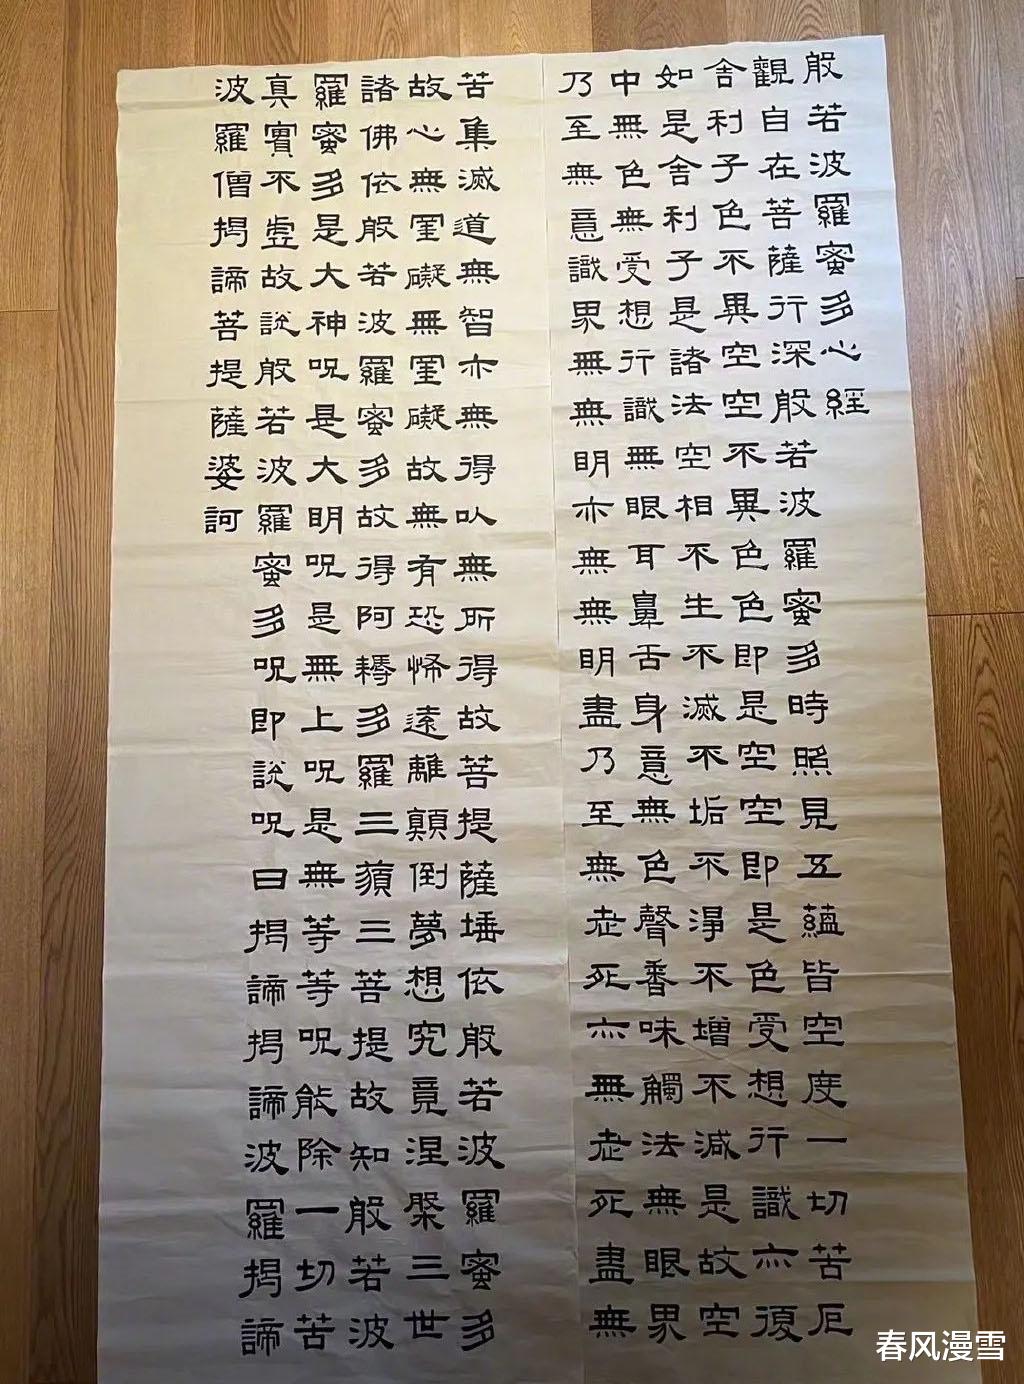 般若波羅蜜多心經
觀自在菩薩行深般若波羅蜜多時照見五蘊皆空度一切苦厄
舍利子色不異空空不異色色即是空空即是色受想行識亦復
如是舍利子是諸法空相不生不滅不垢不淨不增不減是故空
中無色無受想行識無眼耳鼻舌身意無色聲香味觸法無眼界
乃至無意識界無無明亦無無明盡乃至無老死亦無老死盡無
苦集滅道無智亦無得以無所得故菩提薩埵依般若波羅蜜多
故心無罣礙無罣礙故無有恐怖遠離顛倒夢想究竟涅槃三世
諸佛依般若波羅蜜多故得阿耨多羅三藐三菩提故知般若波
羅蜜多是大神呪是大明呪是無上呪是無等等呪能除一切苦
真實不虛故說般若波羅蜜多呪即說呪曰揭諦揭諦波羅揭諦
波羅僧揭諦菩提薩婆訶
春风漫雪